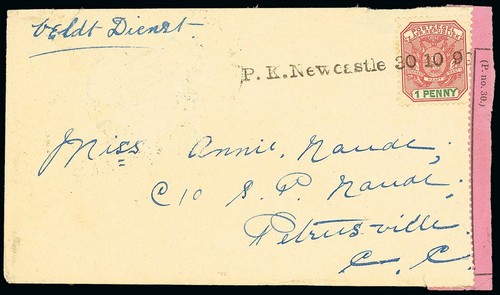 Veldt Dienst.
P. K. Newcastle 30 10 99
1 PENNY
(P. no. 30.)
Miss Annie Naude,
C/o S. P. Naude,
Petrusville
C. C.